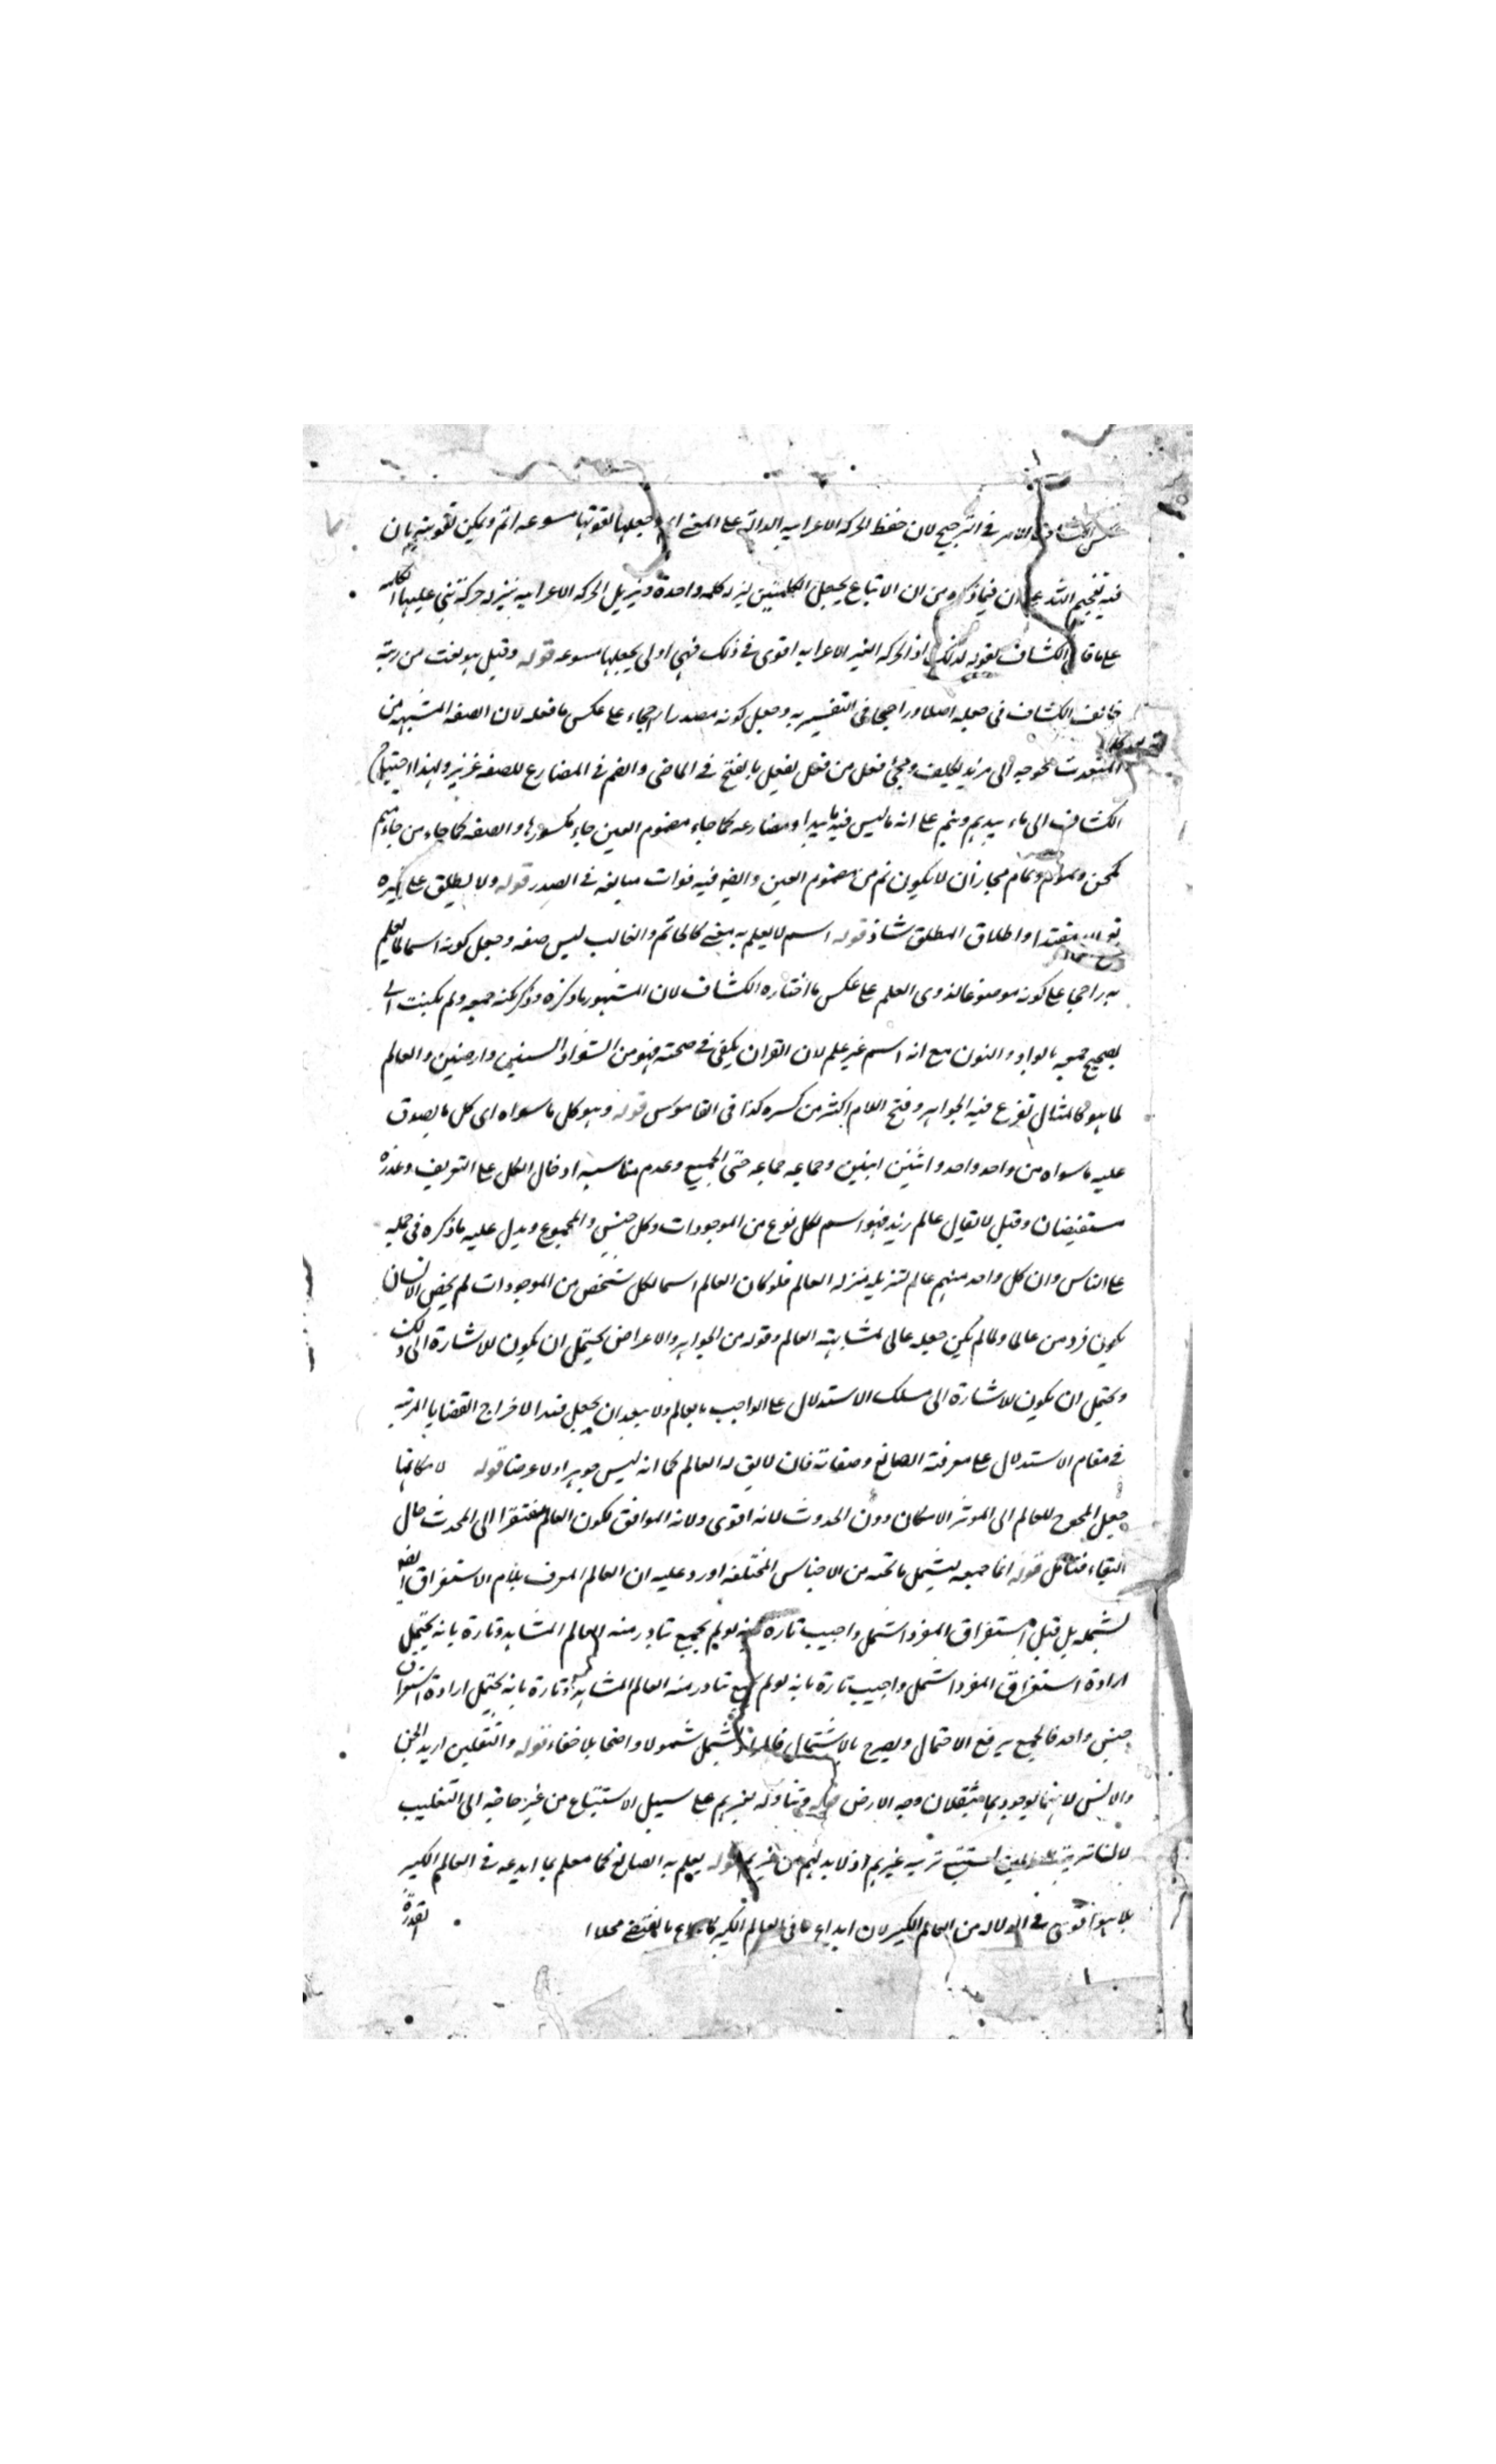 عكس الكشاف الامر في الترجيح لان حفظ الحركه الاعرابيه الدالة على المعنى اهم وجعلها لقوتها متبوعه اتم ويمكن تقويته بان
فيه تفخيم الله على ان فيما ذكره من ان الاتباع يجعل الكلمتين بمنزله كلمه واحدة وتنزيل الحركه الاعرابيه بمنزله حركة تبنى عليها الكلمه
على ما قال الكشاف بقوله لذلك اذ الحركه الغير الاعرابيه اقوى في ذلك فهي اولى بجعلها متبوعه قوله وقيل هو نعت من ربه
خالف الكشاف في جعله اصلا وراجحا في التفسير به وجعل كونه مصدرا راجحا على عكس ما فعله لان الصفه المشبهه من
المتعدى محوجه الى مزيد تكليف ومجئ فعل من فعل يفعل بالفتح في الماضي والضم في المضارع للصفه عزيز ولهذا احتياج
الكشاف الى ونم على انه ليس فيه ومضارعه كما جاء مضموم العين جاء مكسورها والصفه كما جاء من
لا يكون نم من مضموم العين وايضا فيه فوات مبالغه في المصدر قوله ولا يطلق على غيره
مقيدا واطلاق المطلق شاذ قوله اسم لا يعلم به يعنى كالخاتم والغالب ليس صفه وجعل كونه اسما لما يعلم
به راجحا على كونه موضوعا لذوى العلم على عكس ما اختاره الكشاف لان المشهور ما ذكره وذكر نكته جمعه ولم يلتفت الى
تصحيح جمعه بالواو والنون مع انه اسم غير علم لان القران يكفى في صحته فهو من الشواذ كالسنين وارضين والعالم
لما هو كالمثال تفرغ فيه الجواهر وفتح اللام اكثر من كسره كذا في القاموس قوله وهو كل ما سواه اى كل ما يصدق
عليه ما سواه من واحد واحد واثنين اثنين وجماعه جماعه حتى الجميع وعدم مناسبه ادخال الكل على التعريف وعذره
مستفيضان وقيل لا يقال عالم زيد فهو اسم لكل نوع من الموجودات وكل جنس والمجموع ويدل عليه ما ذكره في حمله
على الناس وان كل واحد منهم عالم لتنزيله منزله العالم فلو كان العالم اسما لكل شخص من الموجودات لم يخص الانسان
بكون فرد من عالما ولما لم يكن جعله عالما لمشابهته العالم وقوله من الجواهر والاعراض يحتمل ان يكون للاشارة الى ذلك
ويحتمل ان يكون للاشارة الى مسلك الاستدلال على الواجب بالعالم ولا يبعد ان يجعل قيدا لاخراج القضايا المرتبه
في مقام الاستدلال على معرفة الصانع وصفاته فان لا يقال له العالم كما انه ليس جوهرا ولا عرضا قوله لامكانها
جعل المحوج للعالم الى الموثر الامكان دون الحدوث لانه اقوى ولانه الموافق لكون العالم مفتقرا الى المحدث حال
البقاء فتامل قوله انما جمعه ليشمل ما تحته من الاجناس المختلفه اورد عليه ان العالم المعرف بلام الاستغراق ايضا
يشمله بل قيل استغراق المفرد اشمل واجيب تارة بانه لو لم يجمع تبادر منه العالم المشاهد وتارة بانه يحتمل
ارادة استغراق المفرد اشمل واجيب تارة بانه لو لم يجمع تبادر منه العالم المشاهد وتارة بانه يحتمل ارادة استغراق
جنس واحد فالجمع يرفع الاحتمال ويصرح بالاشتمال يشمل شمولا واضحا بلا خفاء قوله والثقلين اريد الجن
والانس لانهما لوجودهما مثقلان وجه الارض قوله وتناوله لغيرهم على سبيل الاستتباع من غير حاجه الى التغليب
لان تربية العالمين استتبع تربيه غيرهم اذ لا بد لهم من غيرهم قوله يعلم به الصانع كما يعلم بما ابدعه في العالم الكبير
بل هو اقوى في الدلاله من العالم الكبير لان ابداع ما في العالم الكبير ما يقتضى محلا ا
لقدرة